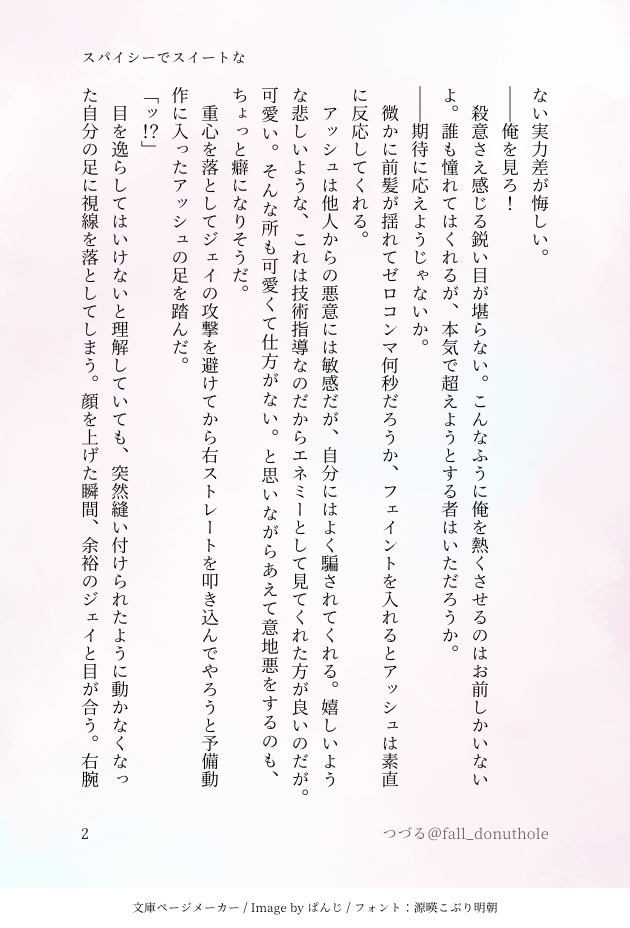 スパイシーでスイートな
ない実力差が悔しい。
――俺を見ろ！
　殺意さえ感じる鋭い目が堪らない。こんなふうに俺を熱くさせるのはお前しかいない
よ。誰も憧れてはくれるが、本気で超えようとする者はいただろうか。
――期待に応えようじゃないか。
　微かに前髪が揺れてゼロコンマ何秒だろうか、フェイントを入れるとアッシュは素直
に反応してくれる。
　アッシュは他人からの悪意には敏感だが、自分にはよく騙されてくれる。嬉しいよう
な悲しいような、これは技術指導なのだからエネミーとして見てくれた方が良いのだが。
可愛い。そんな所も可愛くて仕方がない。と思いながらあえて意地悪をするのも、
ちょっと癖になりそうだ。
　重心を落としてジェイの攻撃を避けてから右ストレートを叩き込んでやろうと予備動
作に入ったアッシュの足を踏んだ。
「ッ!?」
　目を逸らしてはいけないと理解していても、突然縫い付けられたように動かなくなっ
た自分の足に視線を落としてしまう。顔を上げた瞬間、余裕のジェイと目が合う。右腕
2
つづる@fall_donuthole
文庫ページメーカー / Image by ぱんじ / フォント：源暎こぶり明朝